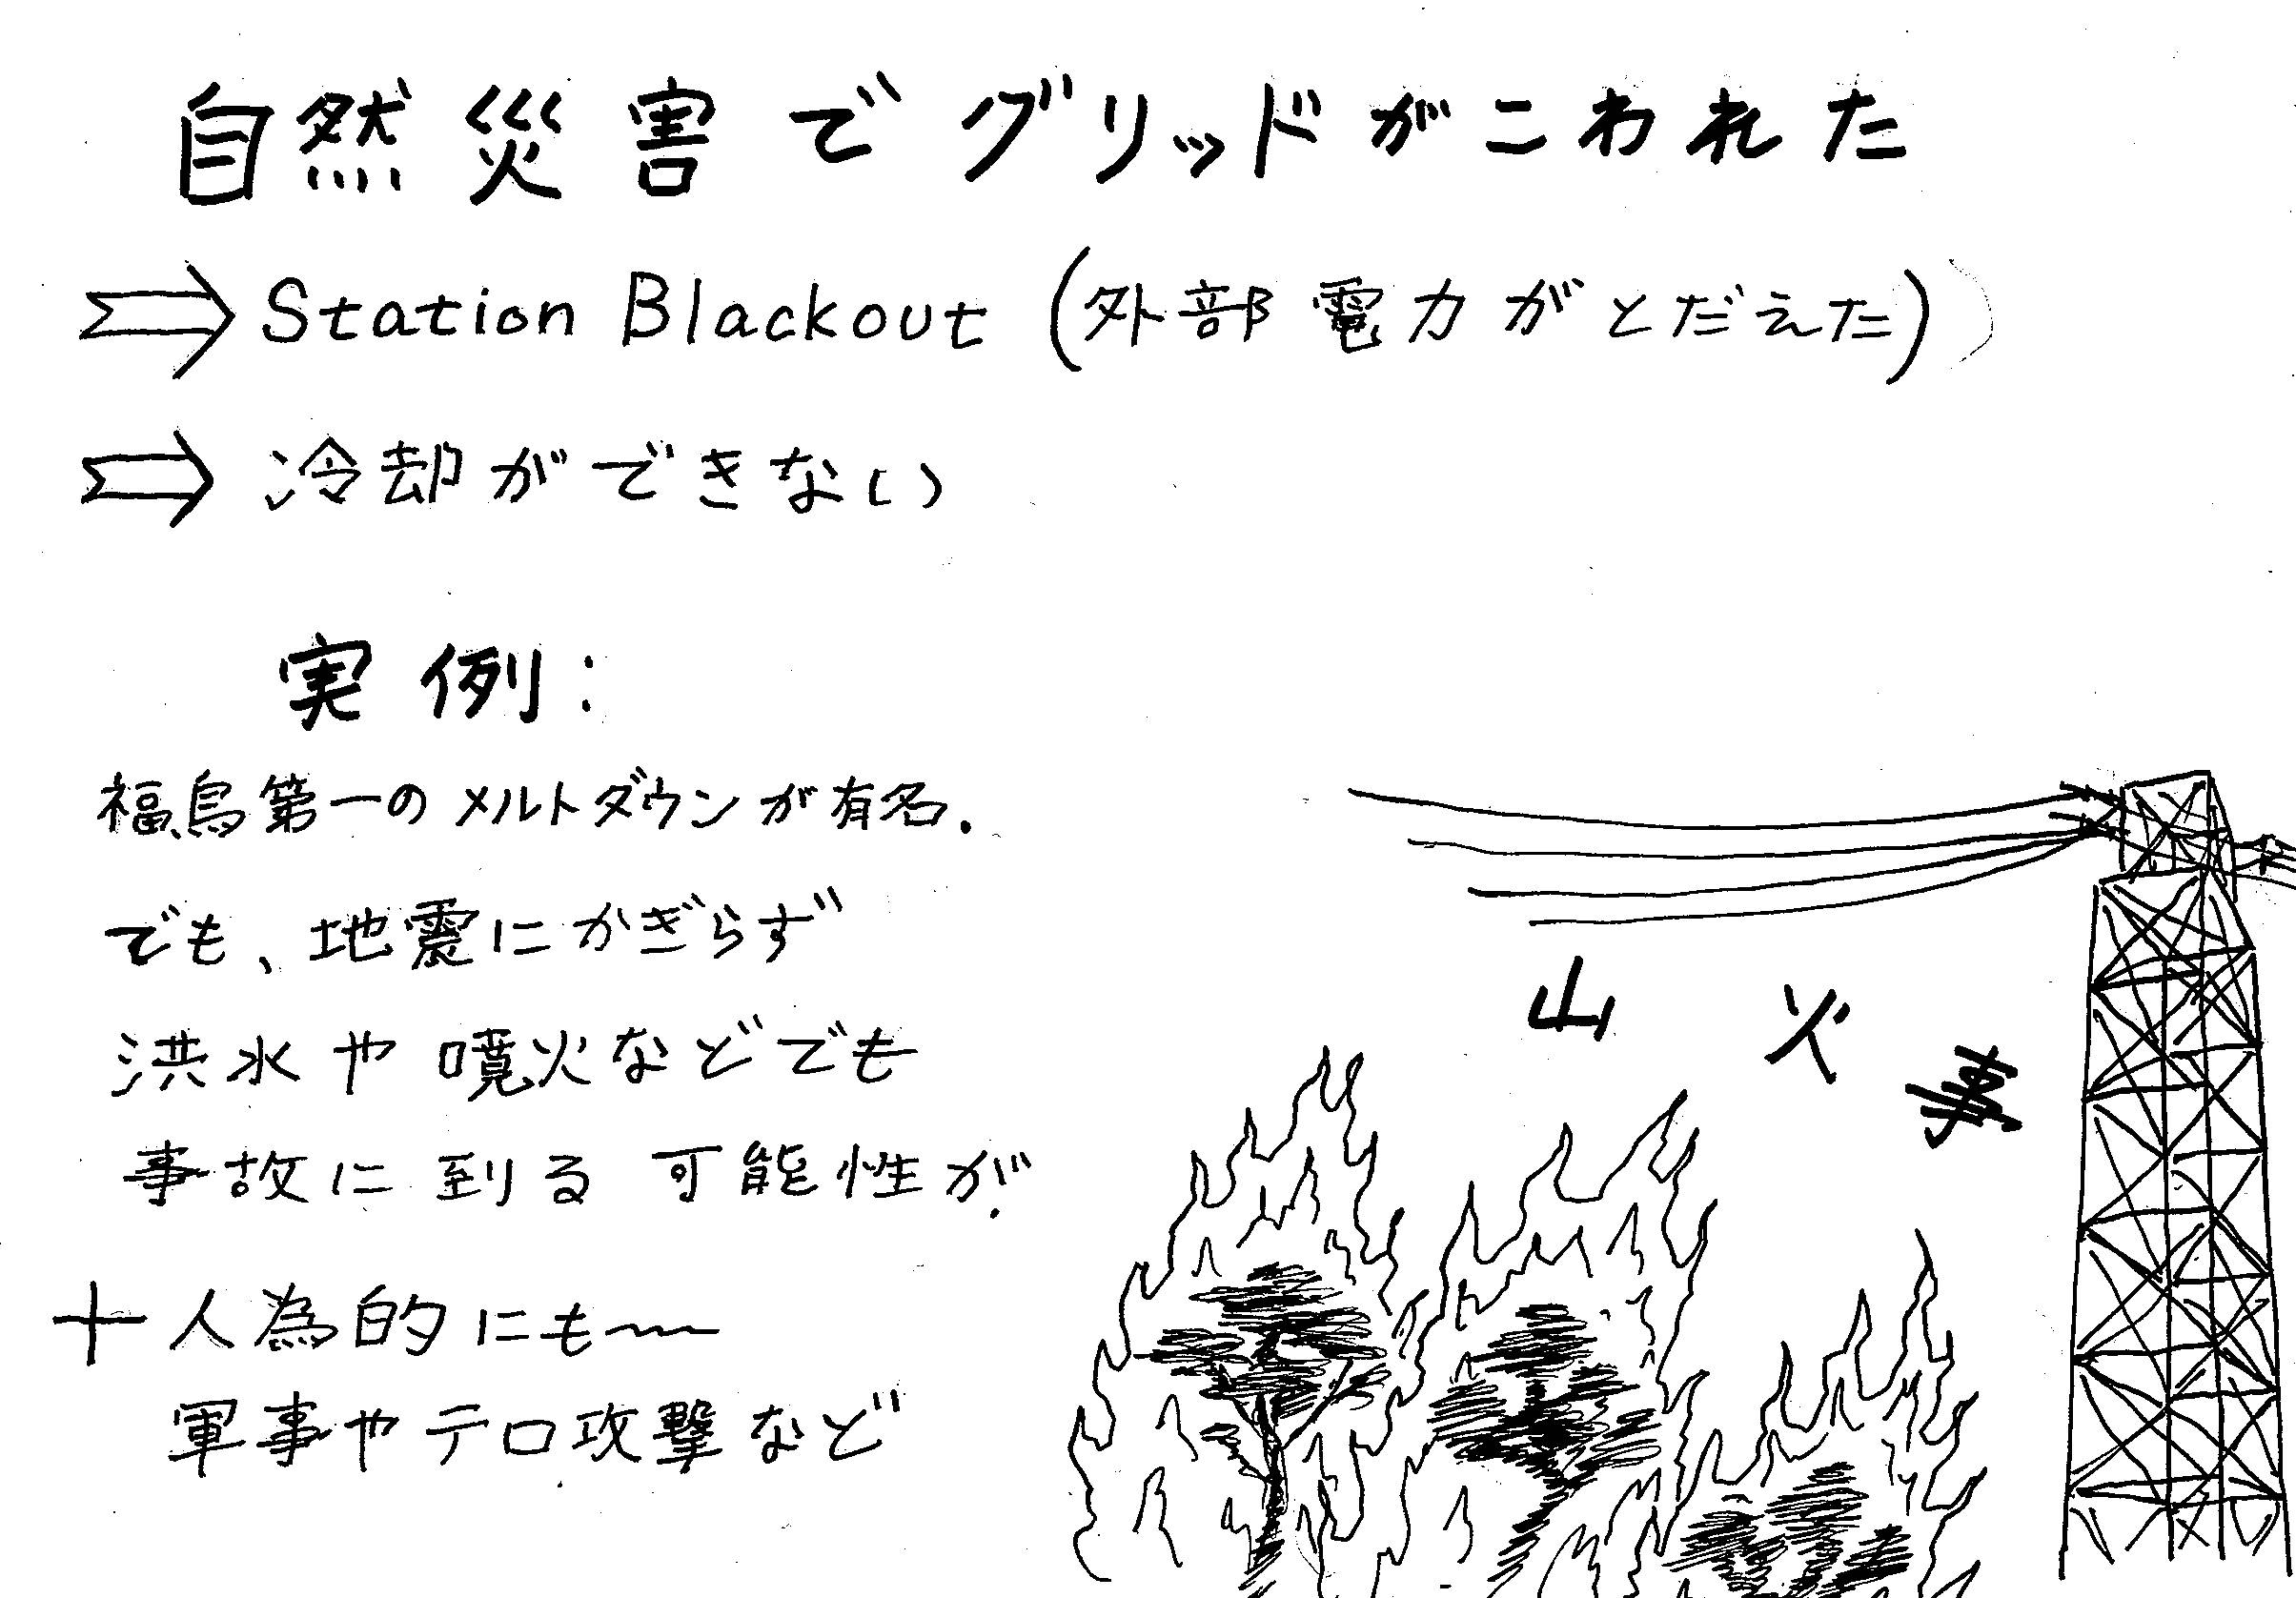 自然災害でグリッドがこわれた
⇒ Station Blackout (外部電力がとだえた)
⇒ 冷却ができない
実例:
福島第一のメルトダウンが有名.
でも、地震にかぎらず
洪水や噴火などでも
事故に到る可能性が.
+ 人為的にも〜
軍事やテロ攻撃など
山火事